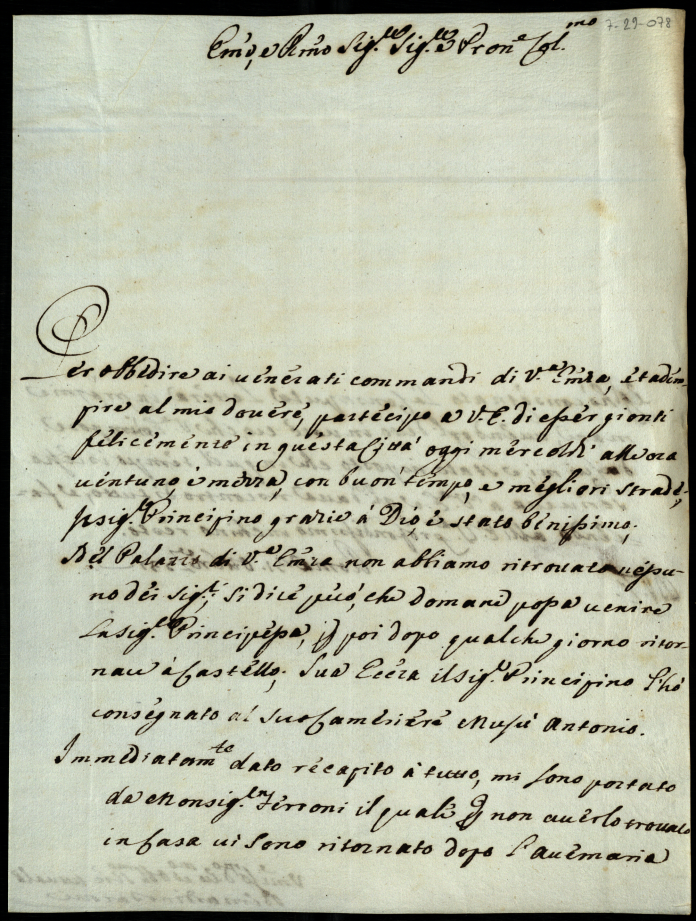 7-29-078
Em̃o, e Rm̃o Sig.re Sig.re e Pron.e Col.mo
Per obbedire ai venerati commandi di V.a Em̃za, et adem-
pire al mio dovere, partecipo a V.E. di esser gionti
felicemente in questa Città oggi mercoldì alle ora
ventuno, e mezza, con buon tempo, e megliori strade,
sig.r Principino grazie à Dio, è stato benissimo;
Nel Palazzo di V.a Em̃za non abbiamo ritrovato nessu-
no dei Sig.ri, si dice però, che domane possa venire
la sig.ra Principessa, poi dopo qualche giorno ritor-
nare à Castello; Sua Ecc̃za il sig.r Principino l'hò
consegnato al suo Cameriere Musù Antonio.
Immediatam.te dato recapito à tutto, mi sono portato
da Monsig.re Ferroni il quale non averlo trovato
in Casa vi sono ritornato dopo l'avemaria